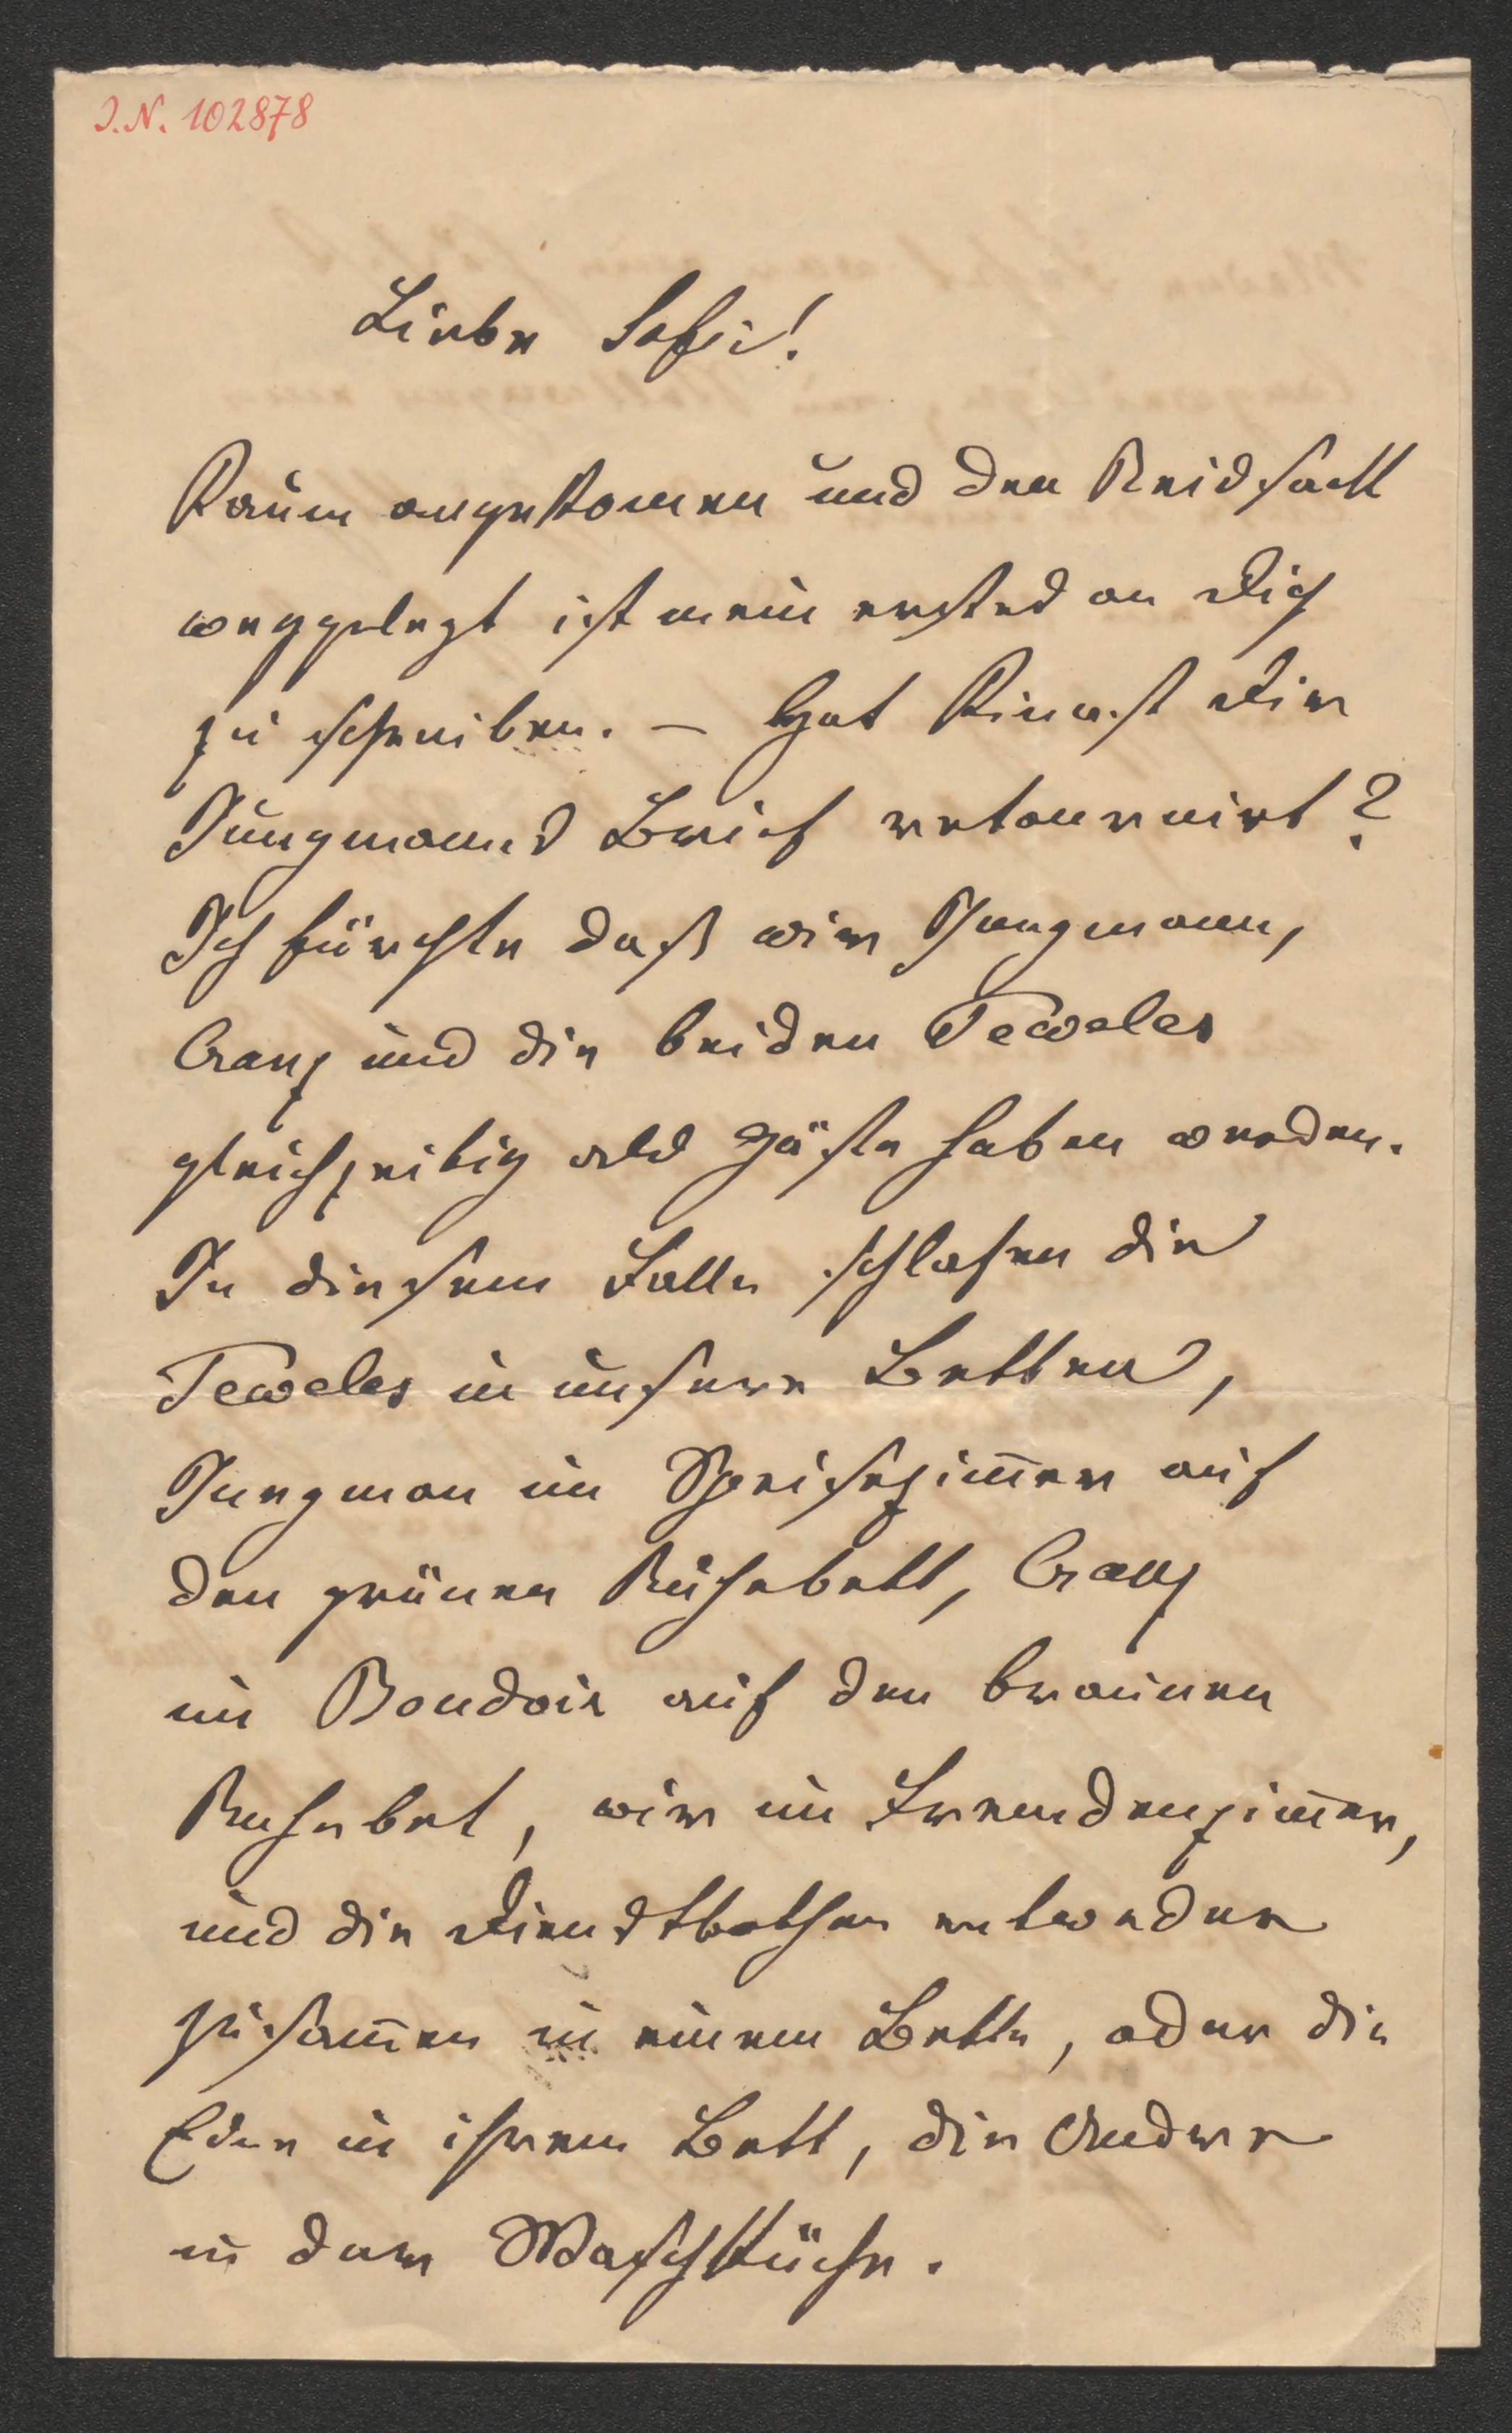 I.N. 102878
Liebe Sofie!
Kaum angekomen und den Reissack
weggelegt ist mein erstes an Dich
zu schreiben. — Hat Dir
Jungmanns Brief retournirt?
Ich fürchte daß wir Jungmann,
Cranz und die beiden Teweles
gleichzeitig als Gäste haben werden.
In diesem Falle schlafen die
Teweles in unsere Betten,
Jungman im Speisezim̅er auf
den grünen Ruhebett, Cranz
im Boudoir auf den braunen
Ruhebet, wir im Fremdenzim̅er,
und die Dienstbothen entweder
zusam̅en in einem Bette, oder die
in ihrem Bett, die Andere
in der Waschküche.